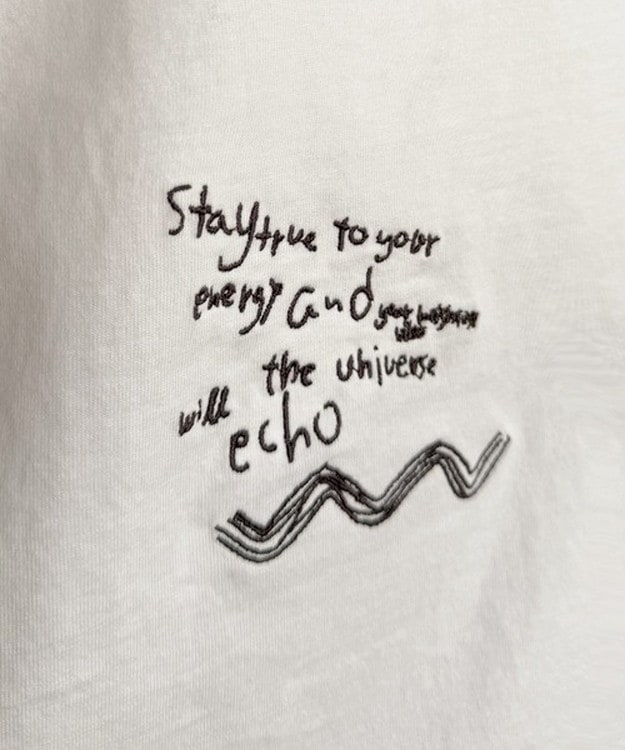 Stay true to your
energy and
the universe
will
echo